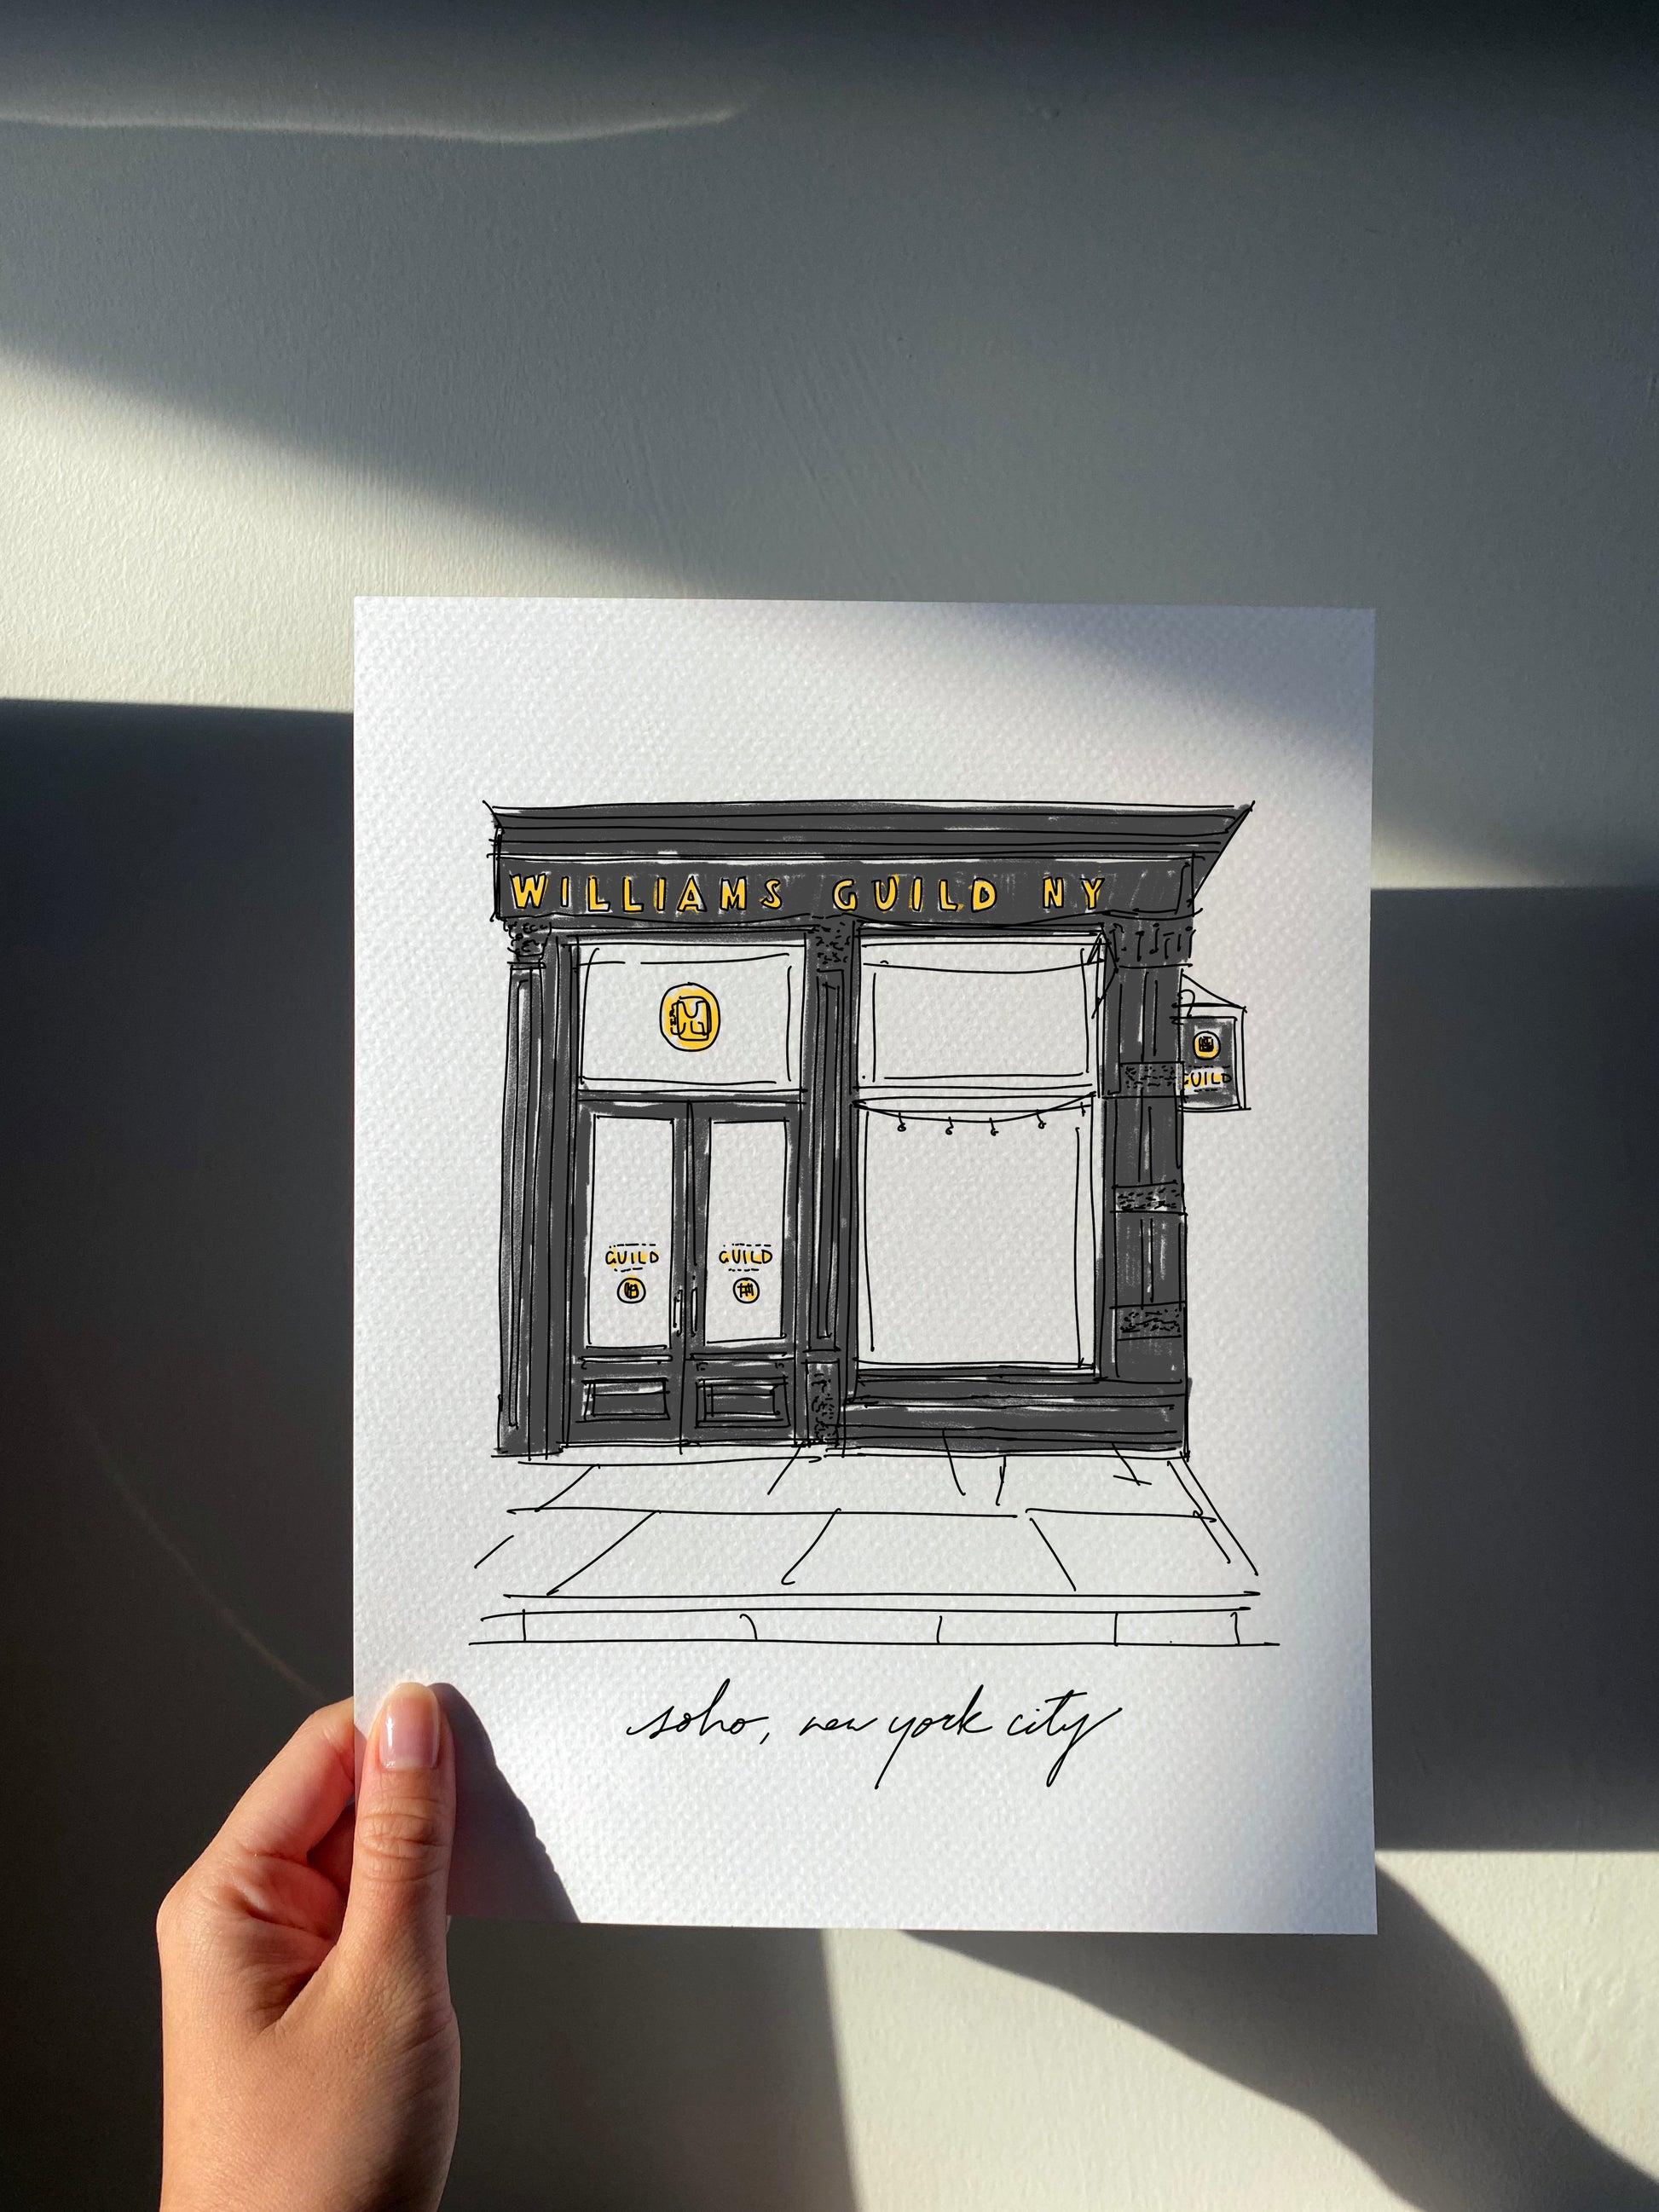 WILLIAMS GUILD NY
GUILD
GUILD
GUILD
soho, new york city